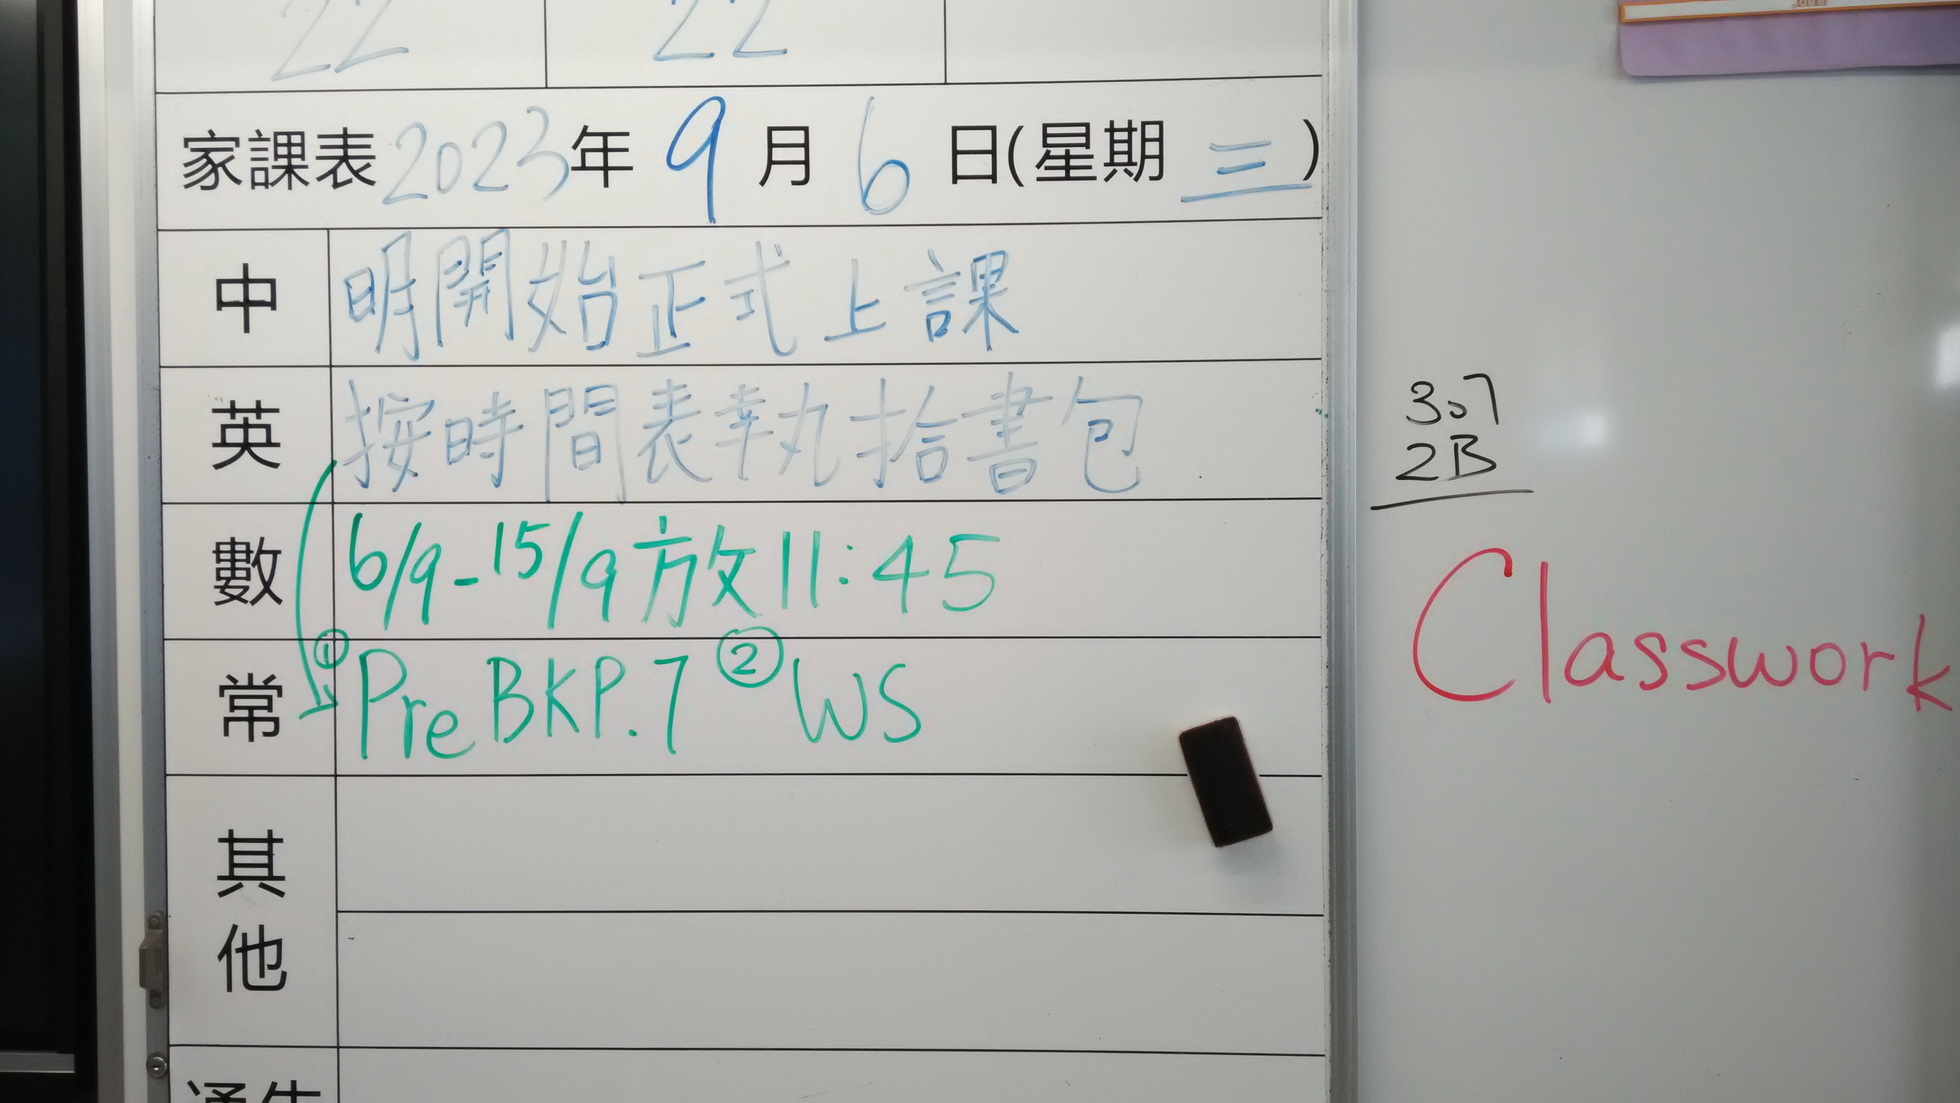 22 22
家課表 2023年 9 月 6 日(星期 三)
中 明開始正式上課
英 按時間表執拾書包
數 6/9-15/9放11:45
常 ①Pre BKP.7 ②WS
其他
通告
307
2B
Classwork